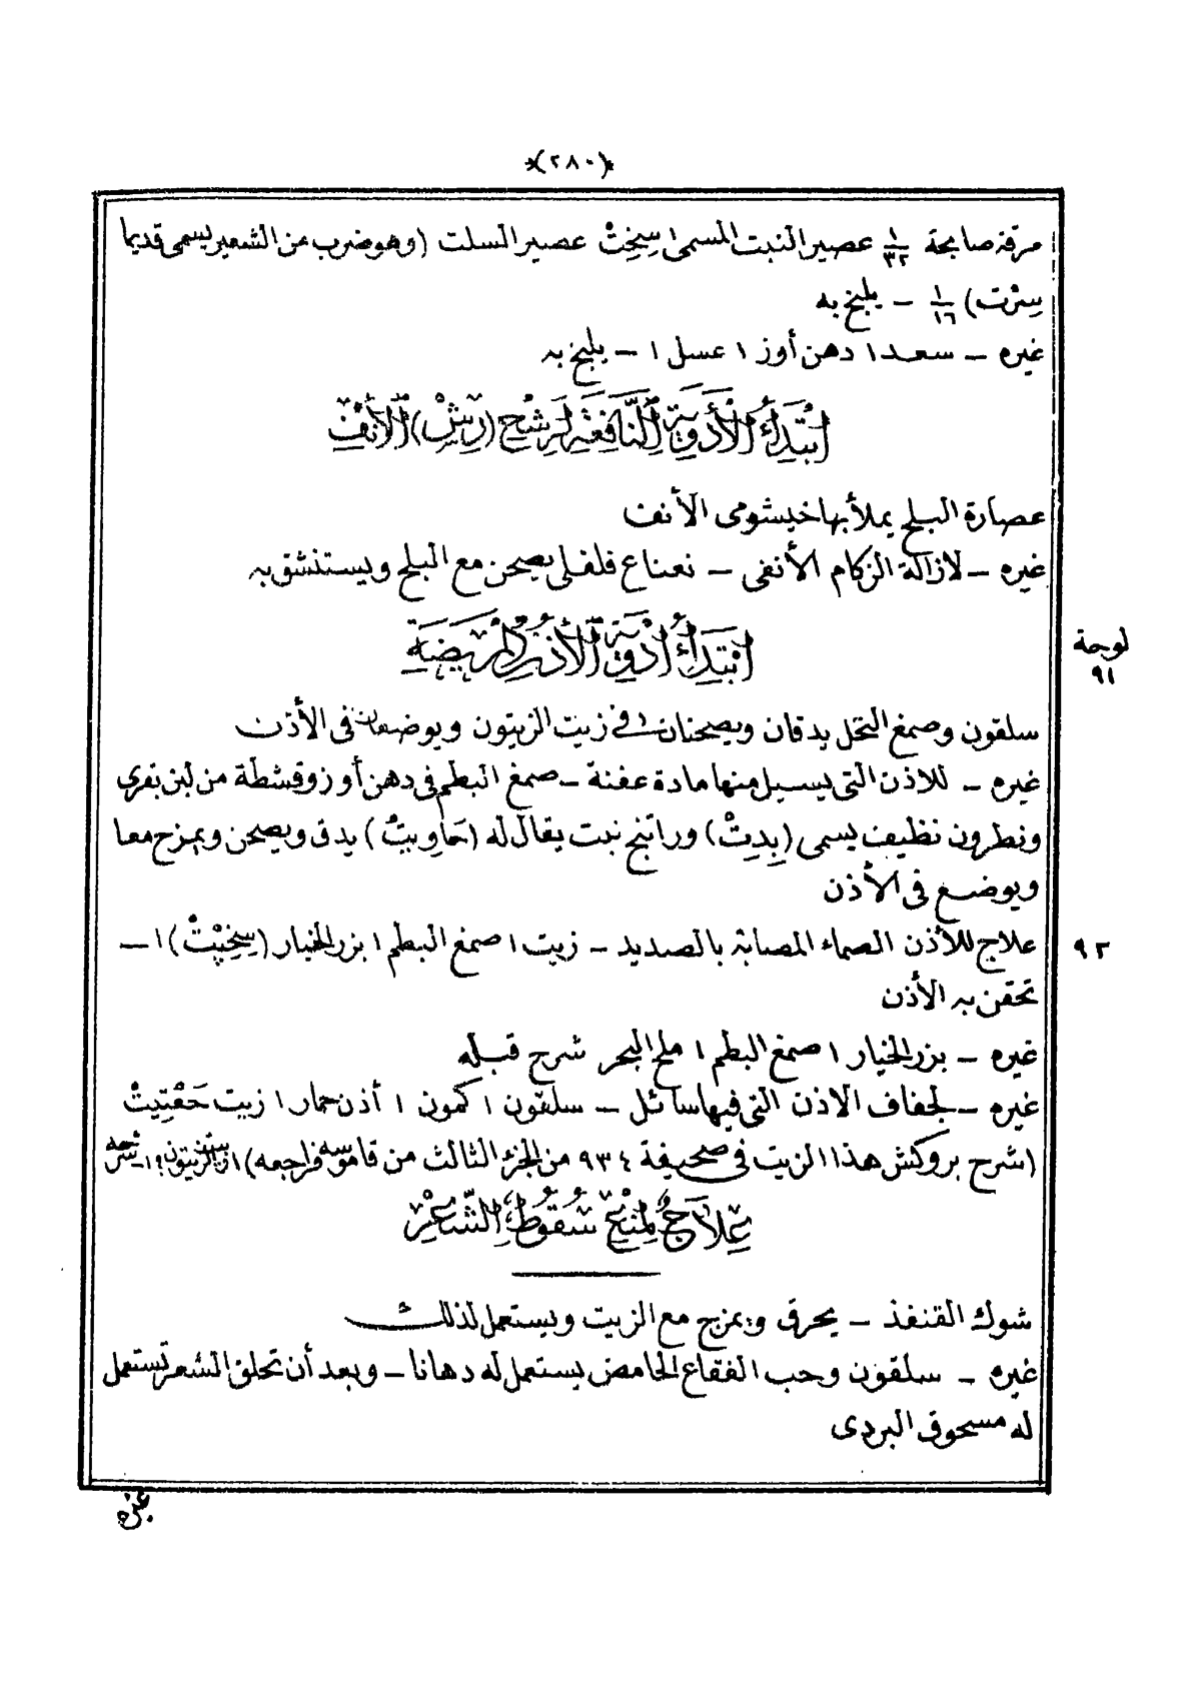 (٢٨٠)
مرقة صابحة ١/٣٢ عصير النبت المسمى اسِخِتْ عصير السلت (وهو ضرب من الشعير يسمى قديما
سِرْت) ١/١٦ — يلبخ به
غيره — سعد ١ دهن أوز ١ عسل ١ — يلبخ به
اِبْتِدَاءُ الْأَدْوِيَةِ النَّافِعَةِ لِرَشْحِ (رَشْ) الْأَنْفِ
عصارة البلح يملأ بها خيشومى الأنف
غيره — لازالة الزكام الأنفى — نعناع فلفلى يصحن مع البلح ويستنشق به
اِبْتِدَاءُ أَدْوِيَةِ الْأُذُنِ الْمَرِيضَةِ
لوحة
٩١
سلقون وصمغ النخل يدقان ويصحنان فى زيت الزيتون ويوضعان فى الأذن
غيره — للاذن التى يسيل منها مادة عفنة — صمغ البطم فى دهن أوز وقشطة من لبن بقرى
ونطرون نظيف يسمى (بِدِتْ) وراتينج نبت يقال له (حَاوِيتْ) يدق ويصحن ويمزج معا
ويوضع فى الأذن
علاج للأذن الصماء المصابة بالصديد — زيت ١ صمغ البطم ١ بزر الخيار (سِخِيْتْ) ١ —
٩٢
تحقن به الأذن
غيره — بزر الخيار ١ صمغ البطم ١ ملح البحر شرح قبله
غيره — لجفاف الاذن التى فيها سائل — سلقون ١ كمون ١ أذن حمار ١ زيت حَقْتِيتْ
(شرح بروكش هذا الزيت فى صحيفة ٩٣٤ من الجزء الثالث من قاموسه فراجعه) ١ زيت الزيتون ١ — شرحه
عِلَاجٌ لِمَنْعِ سُقُوطِ الشَّعْرِ
شوك القنفذ — يحرق ويمزج مع الزيت ويستعمل لذلك
غيره — سلقون وحب الفقاع الحامض يستعمل له دهانا — وبعد أن تحلق الشعر تستعمل
له مسحوق البردى
غيره